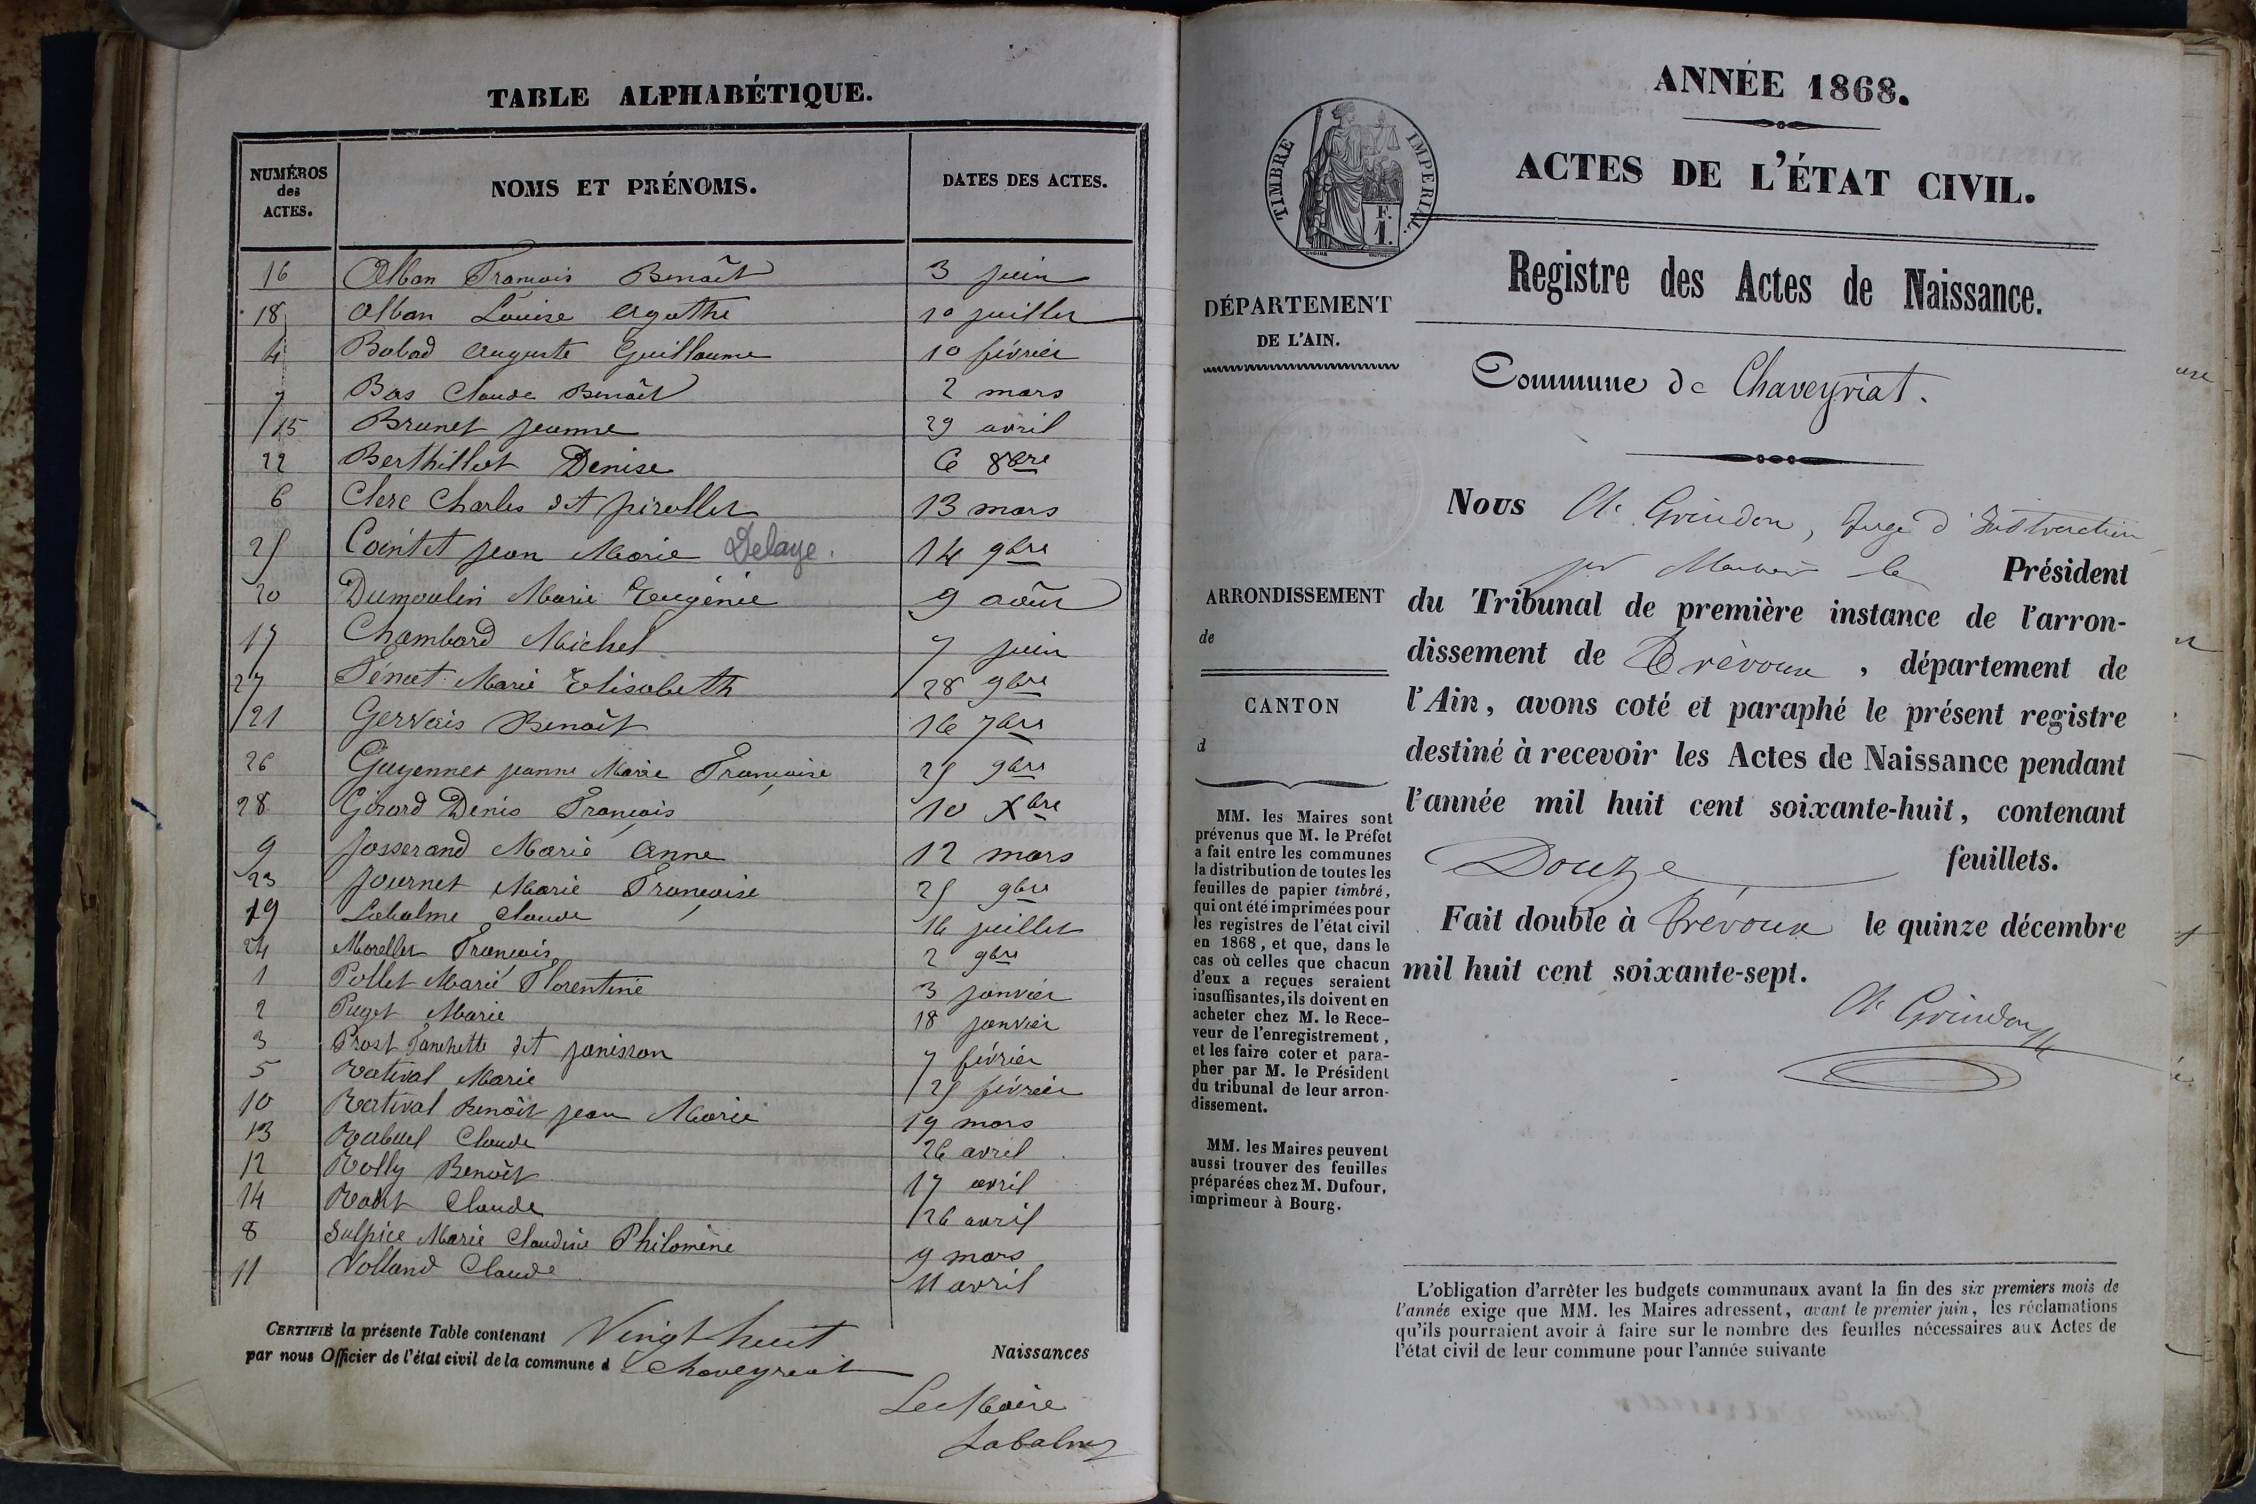 TABLE ALPHABÉTIQUE.
NUMÉROS des ACTES. NOMS ET PRÉNOMS. DATES DES ACTES.
16 Alban François Benoît 3 juin
18 Alban Louise Agathe 10 juillet
4 Babad Auguste Guillaume 10 février
7 Bas Claude Benoît 2 mars
15 Brunet Jeanne 29 avril
22 Berthillot Denise 6 8bre
6 Clerc Charles dit pirollet 13 mars
25 Cointet Jean Marie Delaye. 14 9bre
20 Dumoulin Marie Eugénie 9 août
17 Chambard Michel 7 juin
27 Fénat Marie Elisabeth 28 9bre
21 Gervais Benoît 16 7bre
26 Guyennet jeanne Marie Françoise 25 9bre
28 Girard Denis François 10 Xbre
9 Josserand Marie Anne 12 mars
23 Journet Marie Françoise 25 9bre
19 Labalme Claude 16 juillet
24 Morellet François 2 9bre
1 Pollet Marie Florentine 3 janvier
2 Puget Marie 18 janvier
3 Prost Fanchette dit janisson 7 février
5 Rativat Marie 25 février
10 Rativat Benoît jean Marie 19 mars
13 Rabuel Claude 26 avril
12 Rolly Benoît 17 avril
14 Claude 26 avril
8 Sulpice Marie Claudine Philomène 9 mars
11 Volland Claude 11 avril
CERTIFIÉ la présente Table contenant Vingt huit Naissances
par nous Officier de l'état civil de la commune d Chaveyriat
Le Maire
Labalme
ANNÉE 1868.
ACTES DE L'ÉTAT CIVIL.
TIMBRE IMPERIAL.
F.
1.
Registre des Actes de Naissance.
DÉPARTEMENT
DE L'AIN.
Commune de Chaveyriat.
ARRONDISSEMENT
de
CANTON
d
MM. les Maires sont
prévenus que M. le Préfet
a fait entre les communes
la distribution de toutes les
feuilles de papier timbré,
qui ont été imprimées pour
les registres de l'état civil
en 1868, et que, dans le
cas où celles que chacun
d'eux a reçues seraient
insuffisantes, ils doivent en
acheter chez M. le Rece-
veur de l'enregistrement,
et les faire coter et para-
pher par M. le Président
du tribunal de leur arron-
dissement.
MM. les Maires peuvent
aussi trouver des feuilles
préparées chez M. Dufour,
imprimeur à Bourg.
Nous Ch. Grindon, Juge d'Instruction
pr Monsieur le Président
du Tribunal de première instance de l'arron-
dissement de Trévoux, département de
l'Ain, avons coté et paraphé le présent registre
destiné à recevoir les Actes de Naissance pendant
l'année mil huit cent soixante-huit, contenant
Douze feuillets.
Fait double à Trévoux le quinze décembre
mil huit cent soixante-sept.
Ch. Grindon
L'obligation d'arrêter les budgets communaux avant la fin des six premiers mois de
l'année exige que MM. les Maires adressent, avant le premier juin, les réclamations
qu'ils pourraient avoir à faire sur le nombre des feuilles nécessaires aux Actes de
l'état civil de leur commune pour l'année suivante